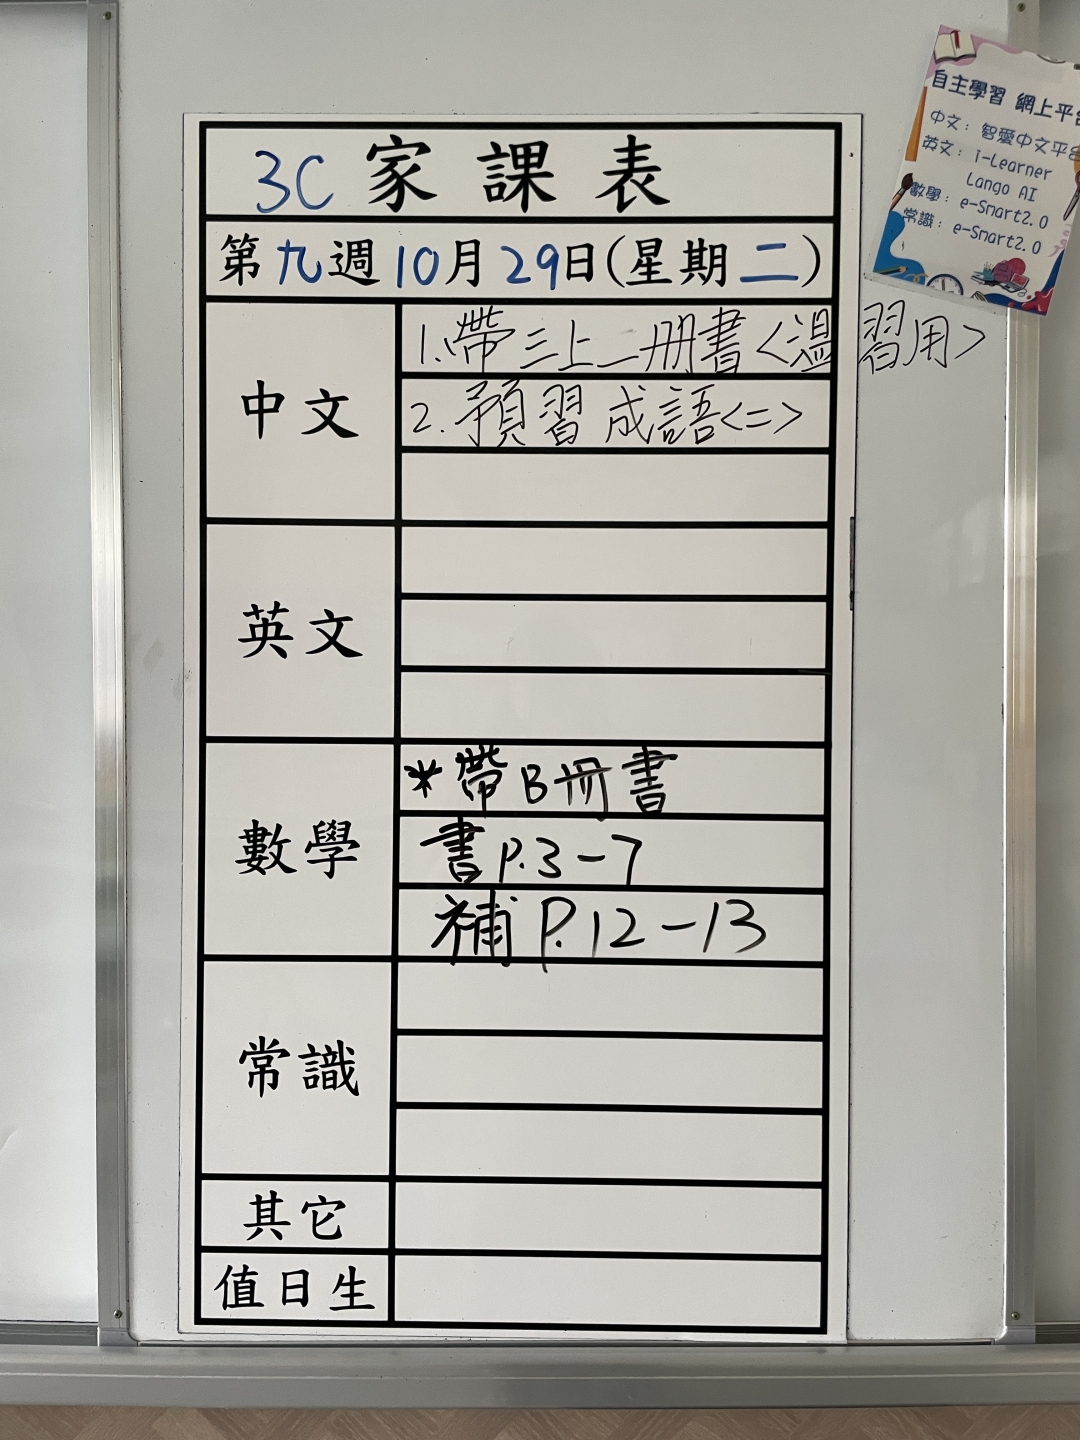 3C 家課表
第九週10月29日(星期二)
中文
1.帶三上一册書<溫習用>
2.預習成語<二>
英文
數學
*帶B冊書
書P.3-7
補P.12-13
常識
其它
值日生
自主學習 網上平台
中文：智愛中文平台
英文：i-Learner
Lango AI
數學：e-Smart2.0
常識：e-Smart2.0